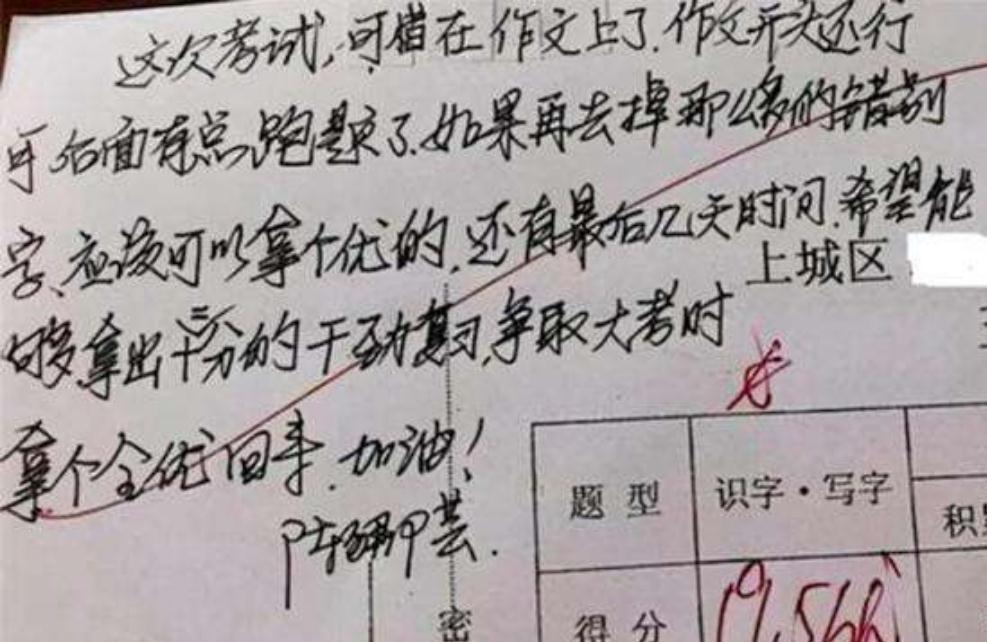 这次考试,可惜在作文上了.作文开头还行
可后面有点跑题了.如果再去掉那么多的错别
字、应该可以拿个优的.还有最后几天时间.希望能
上城区
够拿出十二分的干劲复习,争取大考时
拿个全优回来.加油!
题 型
识字·写字
积累
得 分
19.5
密